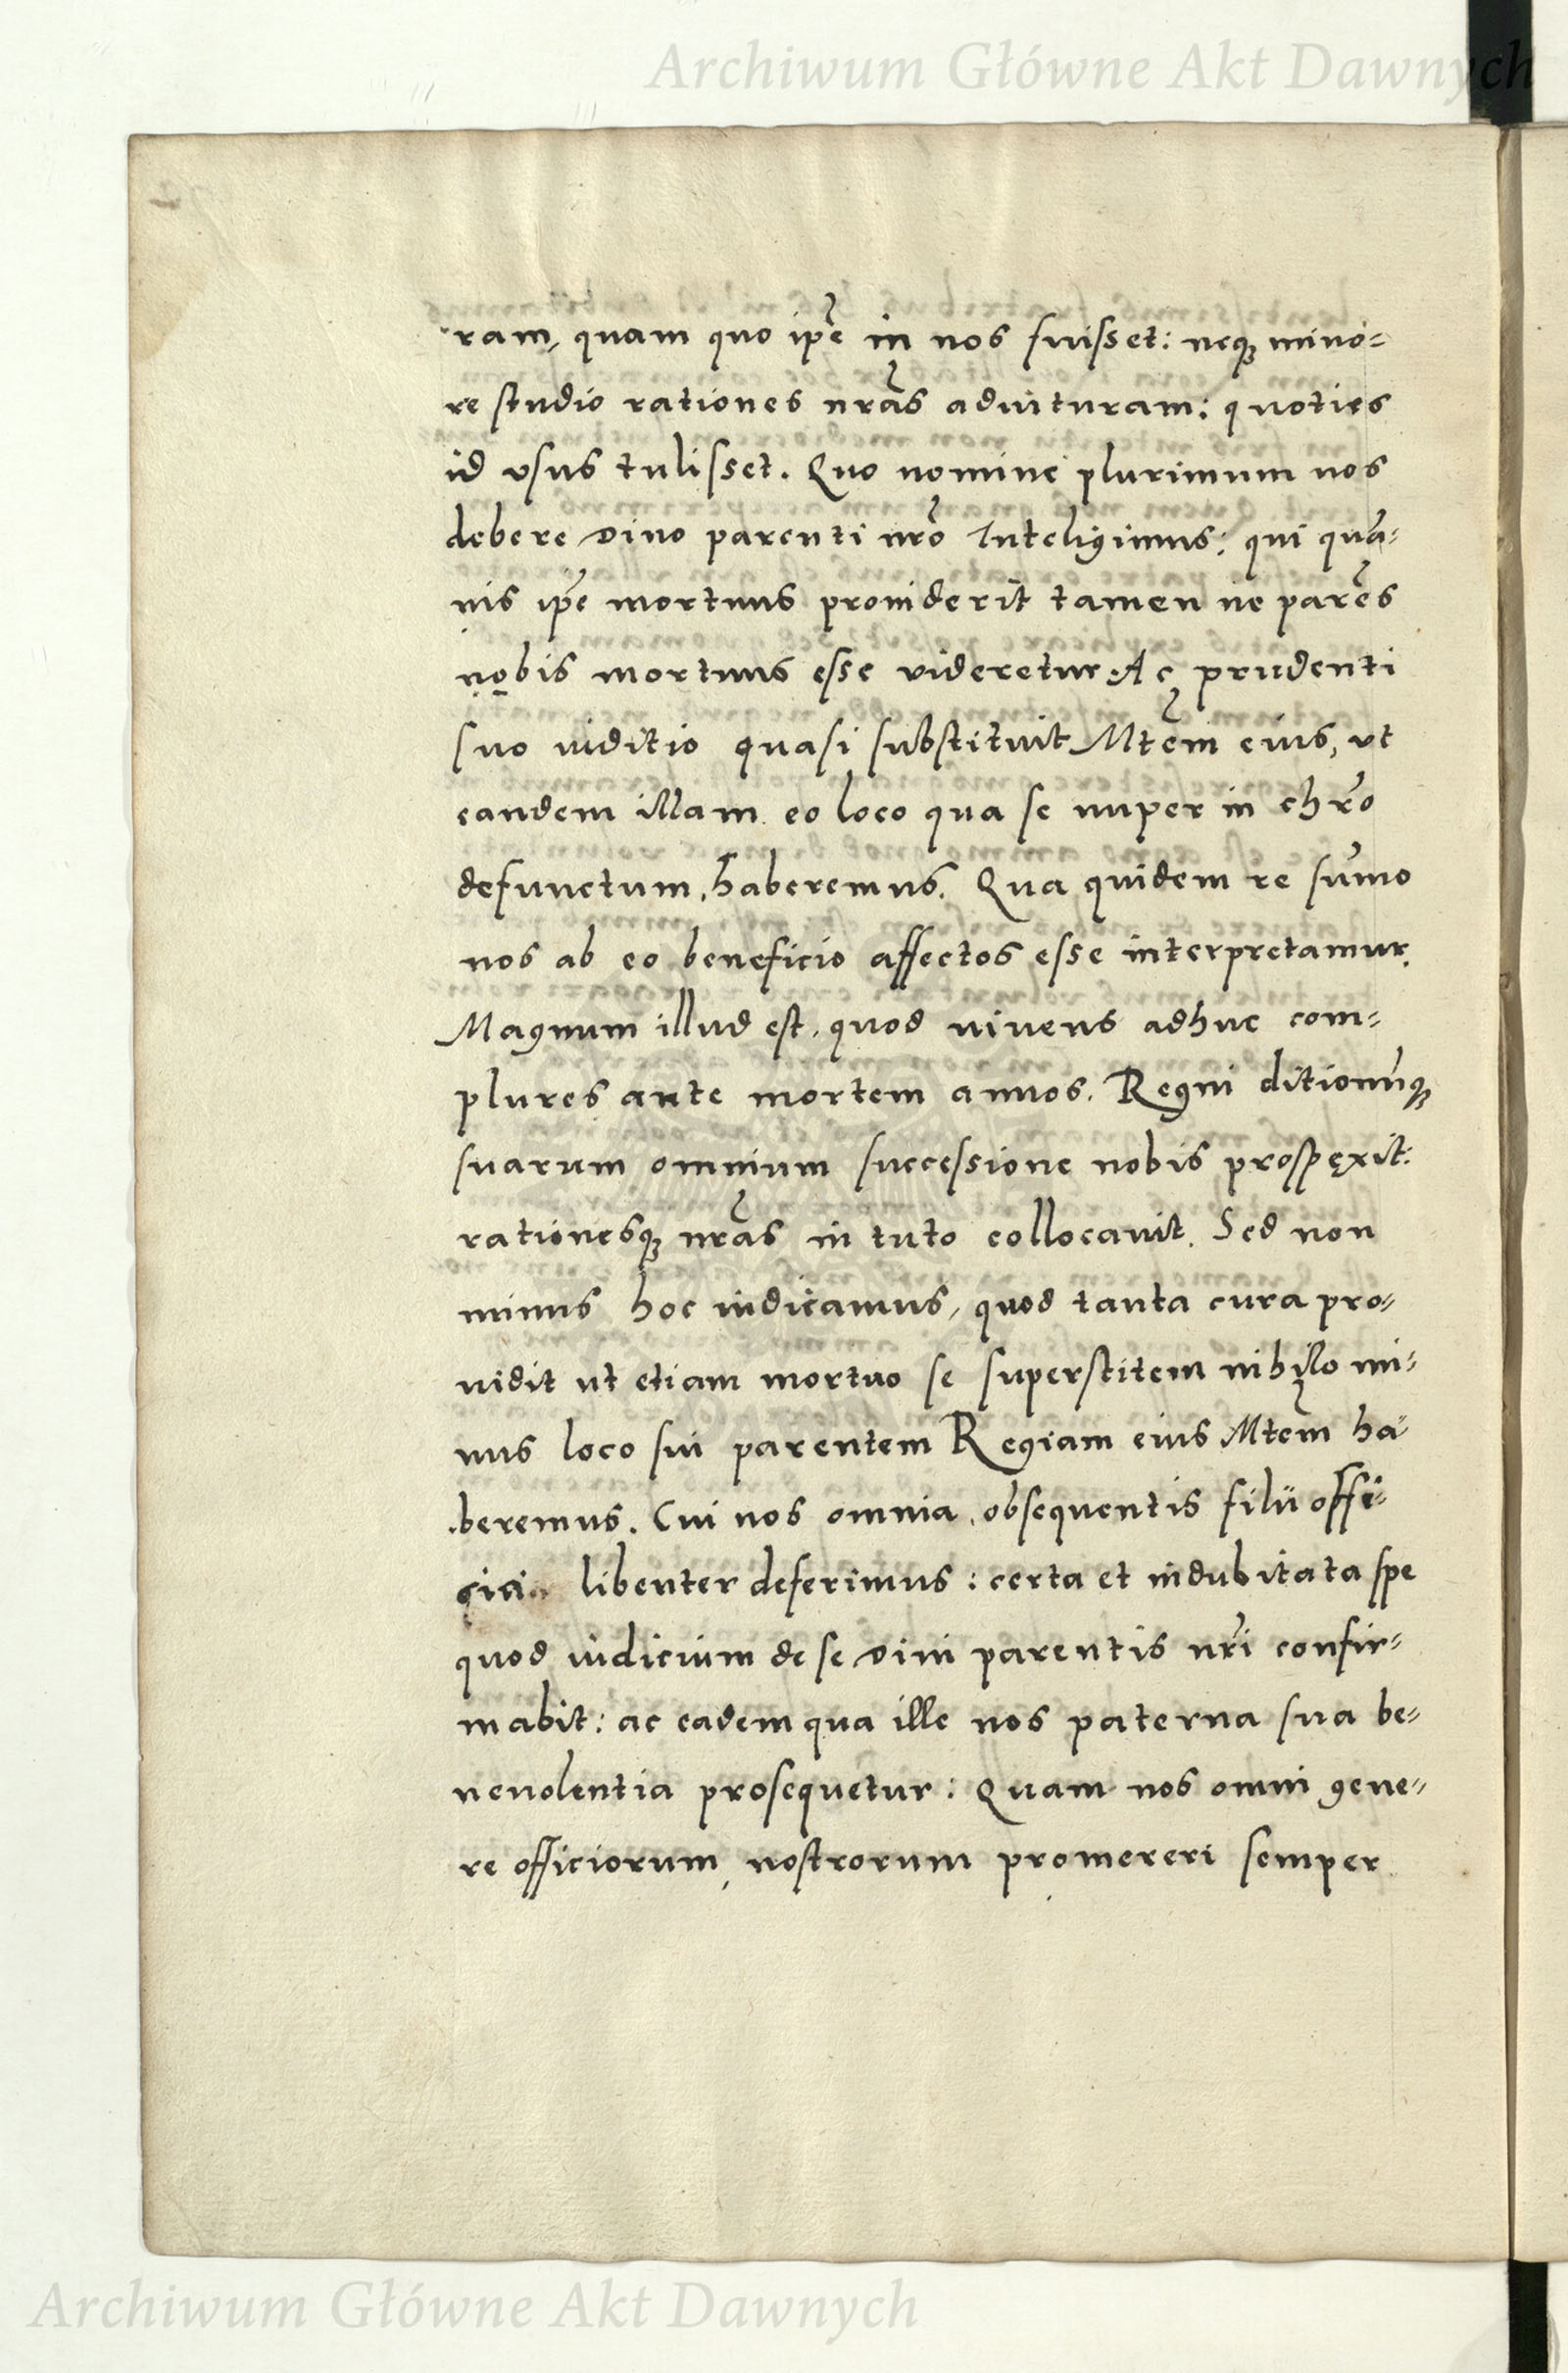 Archiwum Główne Akt Dawnych
ram, quam quo ip̃e in nos fuisset: neqꝫ mino=
re studio rationes nr̃as adiuturam: quoties
id vsus tulisset. Quo nomine plurimum nos
debere Diuo parenti nr̃o Inteligimus: qui quã=
uis ip̃e mortuus prouiderit tamen ne parẽs
nobis mortuus esse videretur: Ac prudenti
suo iuditio quasi substituit Mt̃em eius, vt
eandem illam eo loco qua se nuper in chr̃o
defunctum, haberemus. Qua quidem re sum̃o
nos ab eo beneficio affectos esse interpretamur.
Magnum illud est, quod uiuens adhuc com=
plures ante mortem annos. Regni ditionũqꝫ
suarum omnium successione nobis prospexit:
rationesqꝫ nr̃as in tuto collocauit. Sed non
minus hoc iudicamus, quod tanta cura pro=
uidit ut etiam mortuo se superstitem nihylo mi=
nus loco sui parentem Regiam eius Mtem ha=
beremus. Cui nos omnia obsequentis filii offi=
cia libenter deferimus: certa et indubitata spe
quod iudicium de se Diui parentis nr̃i confir=
mabit: ac eadem qua ille nos paterna sua be=
neuolentia prosequetur: Quam nos omni gene=
re officiorum nostrorum promereri semper
Archiwum Główne Akt Dawnych